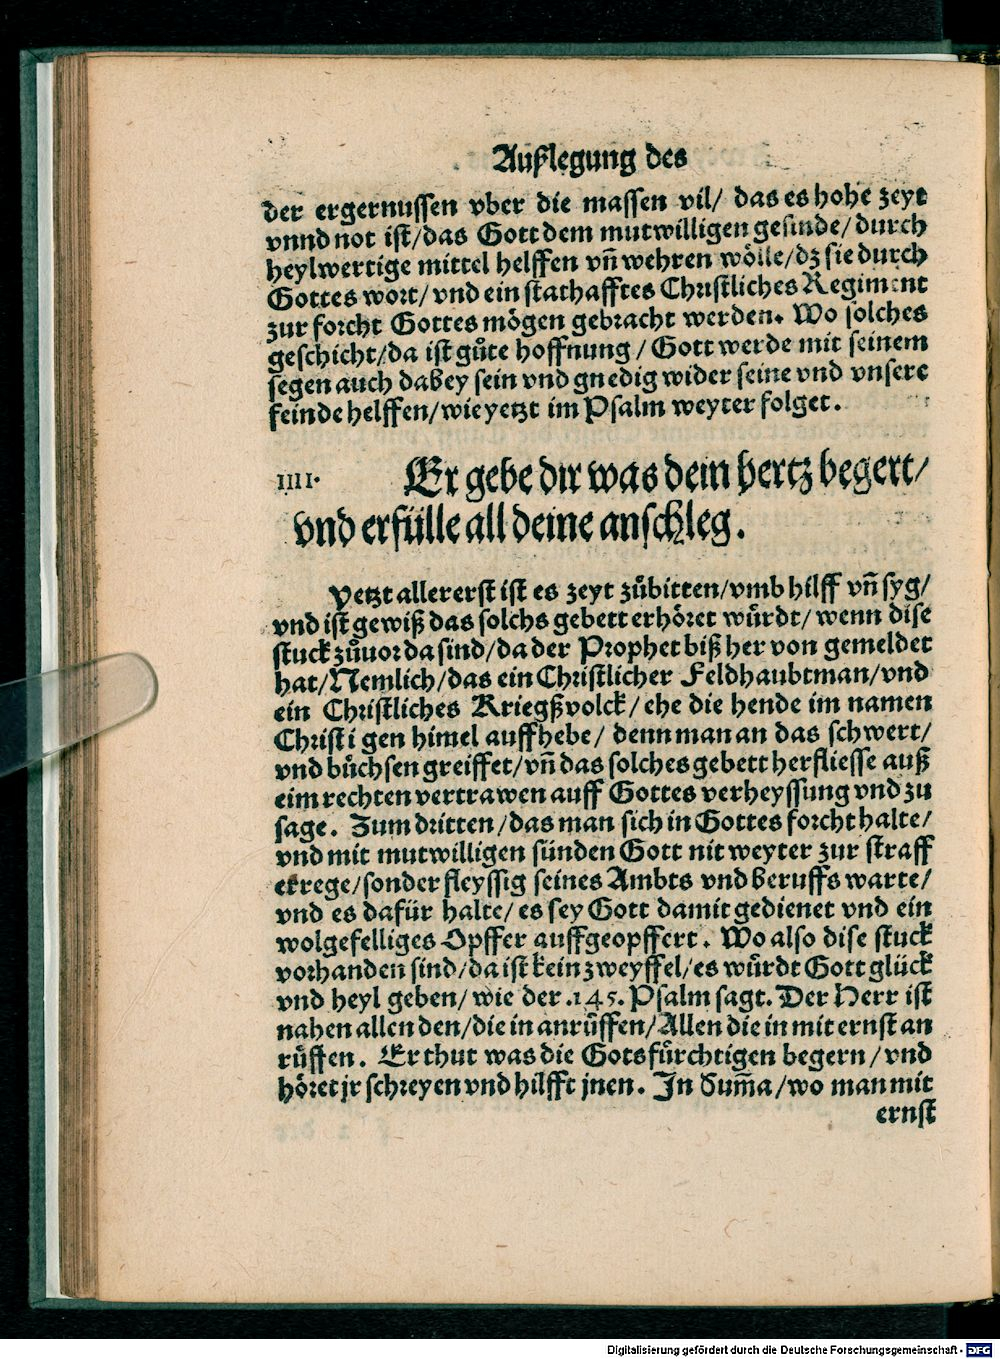 Außlegung des
der ergernussen vber die massen vil/ das es hohe zeyt
vnnd not ist/das Gott dem mutwilligen gesinde/durch
heylwertige mittel helffen vñ wehren wölle/dz sie durch
Gottes wort/vnd ein stathafftes Christliches Regiment
zur forcht Gottes mögen gebracht werden. Wo solches
geschicht/da ist gůte hoffnung/Gott werde mit seinem
segen auch dabey sein vnd gnedig wider seine vnd vnsere
feinde helffen/wie yetzt im Psalm weyter folget.
IIII. Er gebe dir was dein hertz begert/
vnd erfülle all deine anschleg.
Yetzt allererst ist es zeyt zůbitten/vmb hilff vñ syg/
vnd ist gewiß das solchs gebett erhöret würdt/wenn dise
stuck zůuor da sind/da der Prophet biß her von gemeldet
hat/Nemlich/das ein Christlicher Feldhaubtman/vnd
ein Christliches Kriegßvolck/ehe die hende im namen
Christi gen himel auffhebe/denn man an das schwert/
vnd büchsen greiffet/vñ das solches gebett herfliesse auß
eim rechten vertrawen auff Gottes verheyssung vnd zu
sage. Zum dritten/das man sich in Gottes forcht halte/
vnd mit mutwilligen sünden Gott nit weyter zur straff
errege/sonder fleyssig seines Ambts vnd beruffs warte/
vnd es dafür halte/es sey Gott damit gedienet vnd ein
wolgefelliges Opffer auffgeopffert. Wo also dise stuck
vorhanden sind/da ist kein zweyffel/es würdt Gott glück
vnd heyl geben/wie der .145. Psalm sagt. Der Herr ist
nahen allen den/die in anrůffen/Allen die in mit ernst an
růffen. Er thut was die Gotsfürchtigen begern/vnd
höret jr schreyen vnd hilfft jnen. In Sum̃a/wo man mit
ernst
Digitalisierung gefördert durch die Deutsche Forschungsgemeinschaft - DFG